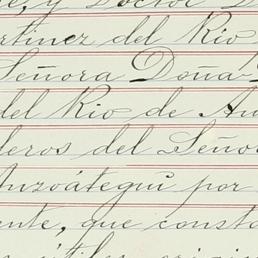 y Doctor D
rtinez del Rio
Señora Doña
del Rio de An
deros del Seño
Anzoátegui por
ente, que consta
útiles